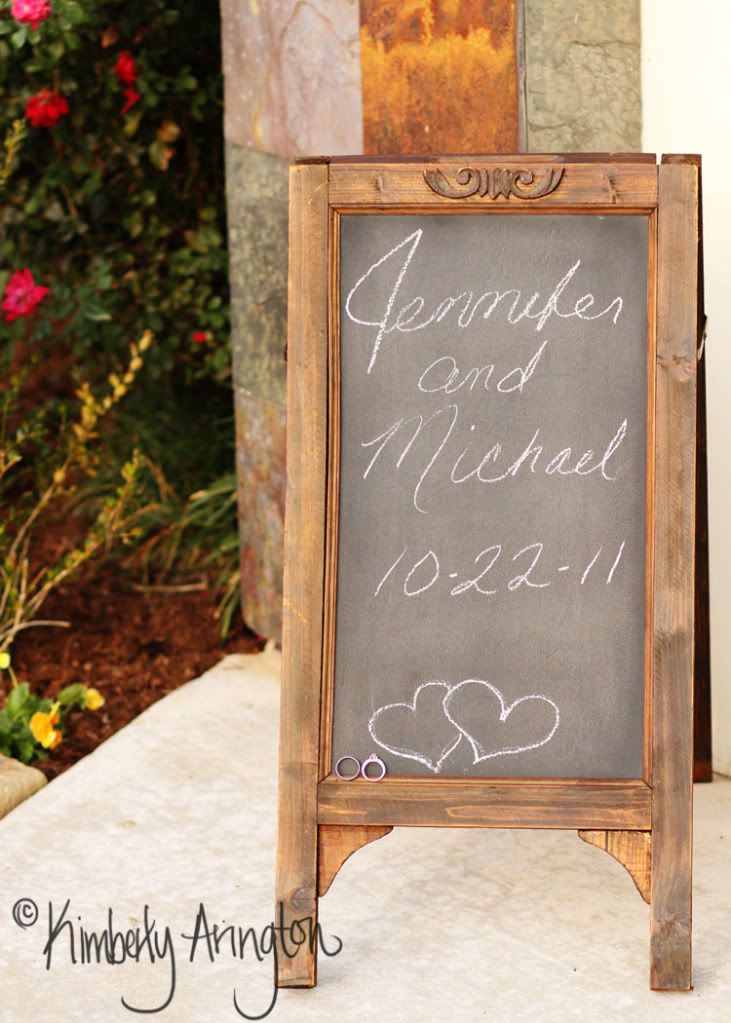 Jennifer
and
Michael
10-22-11
© Kimberly Arington